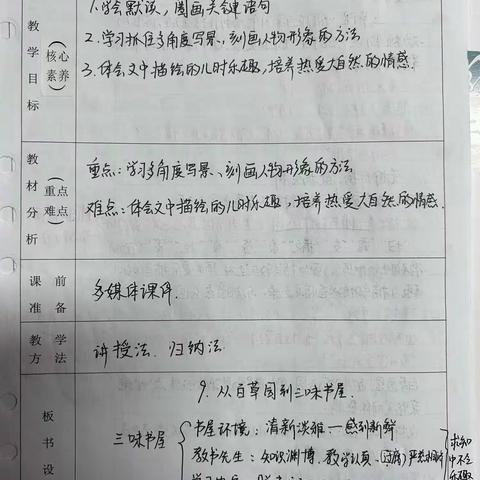 教学目标
(核心素养)
1.学会默读,圈画关键语句
2.学习抓住多角度写景、刻画人物形象的方法
3.体会文中描绘的儿时乐趣,培养热爱大自然的情感.
教材分析
(重点难点)
重点:学习多角度写景、刻画人物形象的方法
难点:体会文中描绘的儿时乐趣,培养热爱大自然的情感.
课前准备
多媒体课件.
教学方法
讲授法. 归纳法.
板书设
9. 从百草园到三味书屋.
三味书屋
书屋环境:清新淡雅一感到新鲜
教书先生:知识渊博.教学认真、
求知
中不乏
乐趣